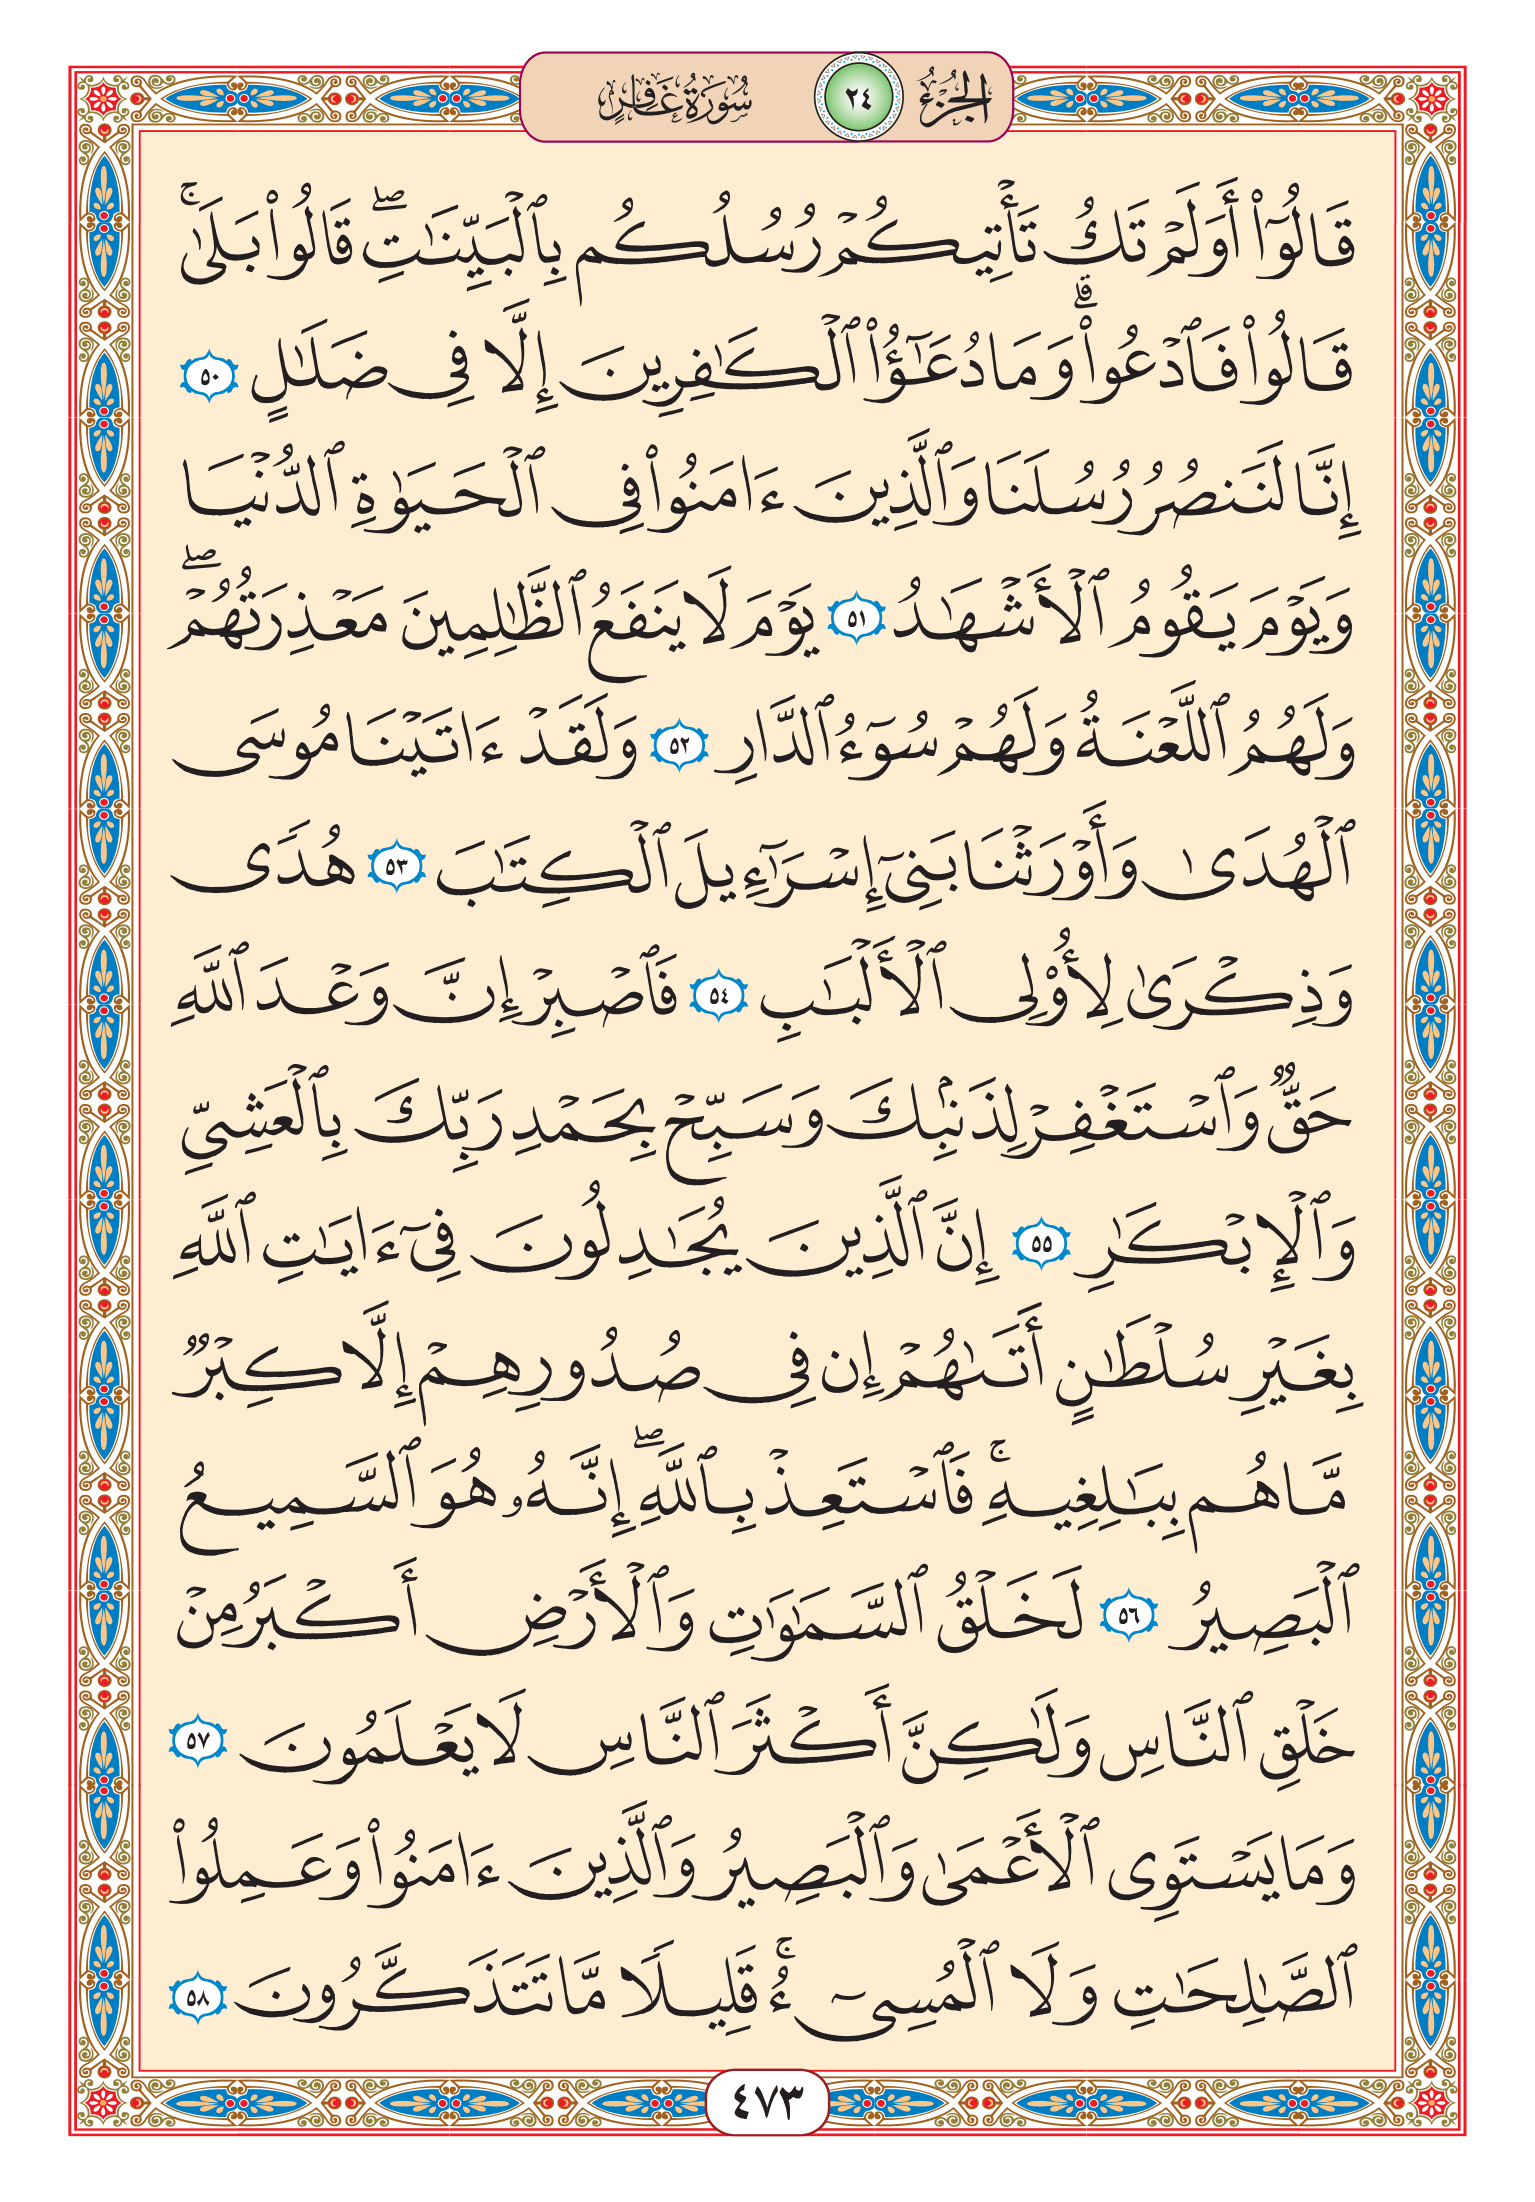 الجزء ٢٤ سورة غافر
قَالُوٓاْ أَوَلَمْ تَكُ تَأْتِيكُمْ رُسُلُكُم بِٱلْبَيِّنَٰتِۖ قَالُواْ بَلَىٰۚ
قَالُواْ فَٱدْعُواْۗ وَمَا دُعَٰٓؤُاْ ٱلْكَٰفِرِينَ إِلَّا فِى ضَلَٰلٍ ٥٠
إِنَّا لَنَنصُرُ رُسُلَنَا وَٱلَّذِينَ ءَامَنُواْ فِى ٱلْحَيَوٰةِ ٱلدُّنْيَا
وَيَوْمَ يَقُومُ ٱلْأَشْهَٰدُ ٥١ يَوْمَ لَا يَنفَعُ ٱلظَّٰلِمِينَ مَعْذِرَتُهُمْۖ
وَلَهُمُ ٱللَّعْنَةُ وَلَهُمْ سُوٓءُ ٱلدَّارِ ٥٢ وَلَقَدْ ءَاتَيْنَا مُوسَى
ٱلْهُدَىٰ وَأَوْرَثْنَا بَنِىٓ إِسْرَٰٓءِيلَ ٱلْكِتَٰبَ ٥٣ هُدًى
وَذِكْرَىٰ لِأُوْلِى ٱلْأَلْبَٰبِ ٥٤ فَٱصْبِرْ إِنَّ وَعْدَ ٱللَّهِ
حَقٌّ وَٱسْتَغْفِرْ لِذَنۢبِكَ وَسَبِّحْ بِحَمْدِ رَبِّكَ بِٱلْعَشِىِّ
وَٱلْإِبْكَٰرِ ٥٥ إِنَّ ٱلَّذِينَ يُجَٰدِلُونَ فِىٓ ءَايَٰتِ ٱللَّهِ
بِغَيْرِ سُلْطَٰنٍ أَتَىٰهُمْ إِن فِى صُدُورِهِمْ إِلَّا كِبْرٌ
مَّا هُم بِبَٰلِغِيهِۚ فَٱسْتَعِذْ بِٱللَّهِۖ إِنَّهُۥ هُوَ ٱلسَّمِيعُ
ٱلْبَصِيرُ ٥٦ لَخَلْقُ ٱلسَّمَٰوَٰتِ وَٱلْأَرْضِ أَكْبَرُ مِنْ
خَلْقِ ٱلنَّاسِ وَلَٰكِنَّ أَكْثَرَ ٱلنَّاسِ لَا يَعْلَمُونَ ٥٧
وَمَا يَسْتَوِى ٱلْأَعْمَىٰ وَٱلْبَصِيرُ وَٱلَّذِينَ ءَامَنُواْ وَعَمِلُواْ
ٱلصَّٰلِحَٰتِ وَلَا ٱلْمُسِىٓءُۚ قَلِيلًا مَّا تَتَذَكَّرُونَ ٥٨
٤٧٣